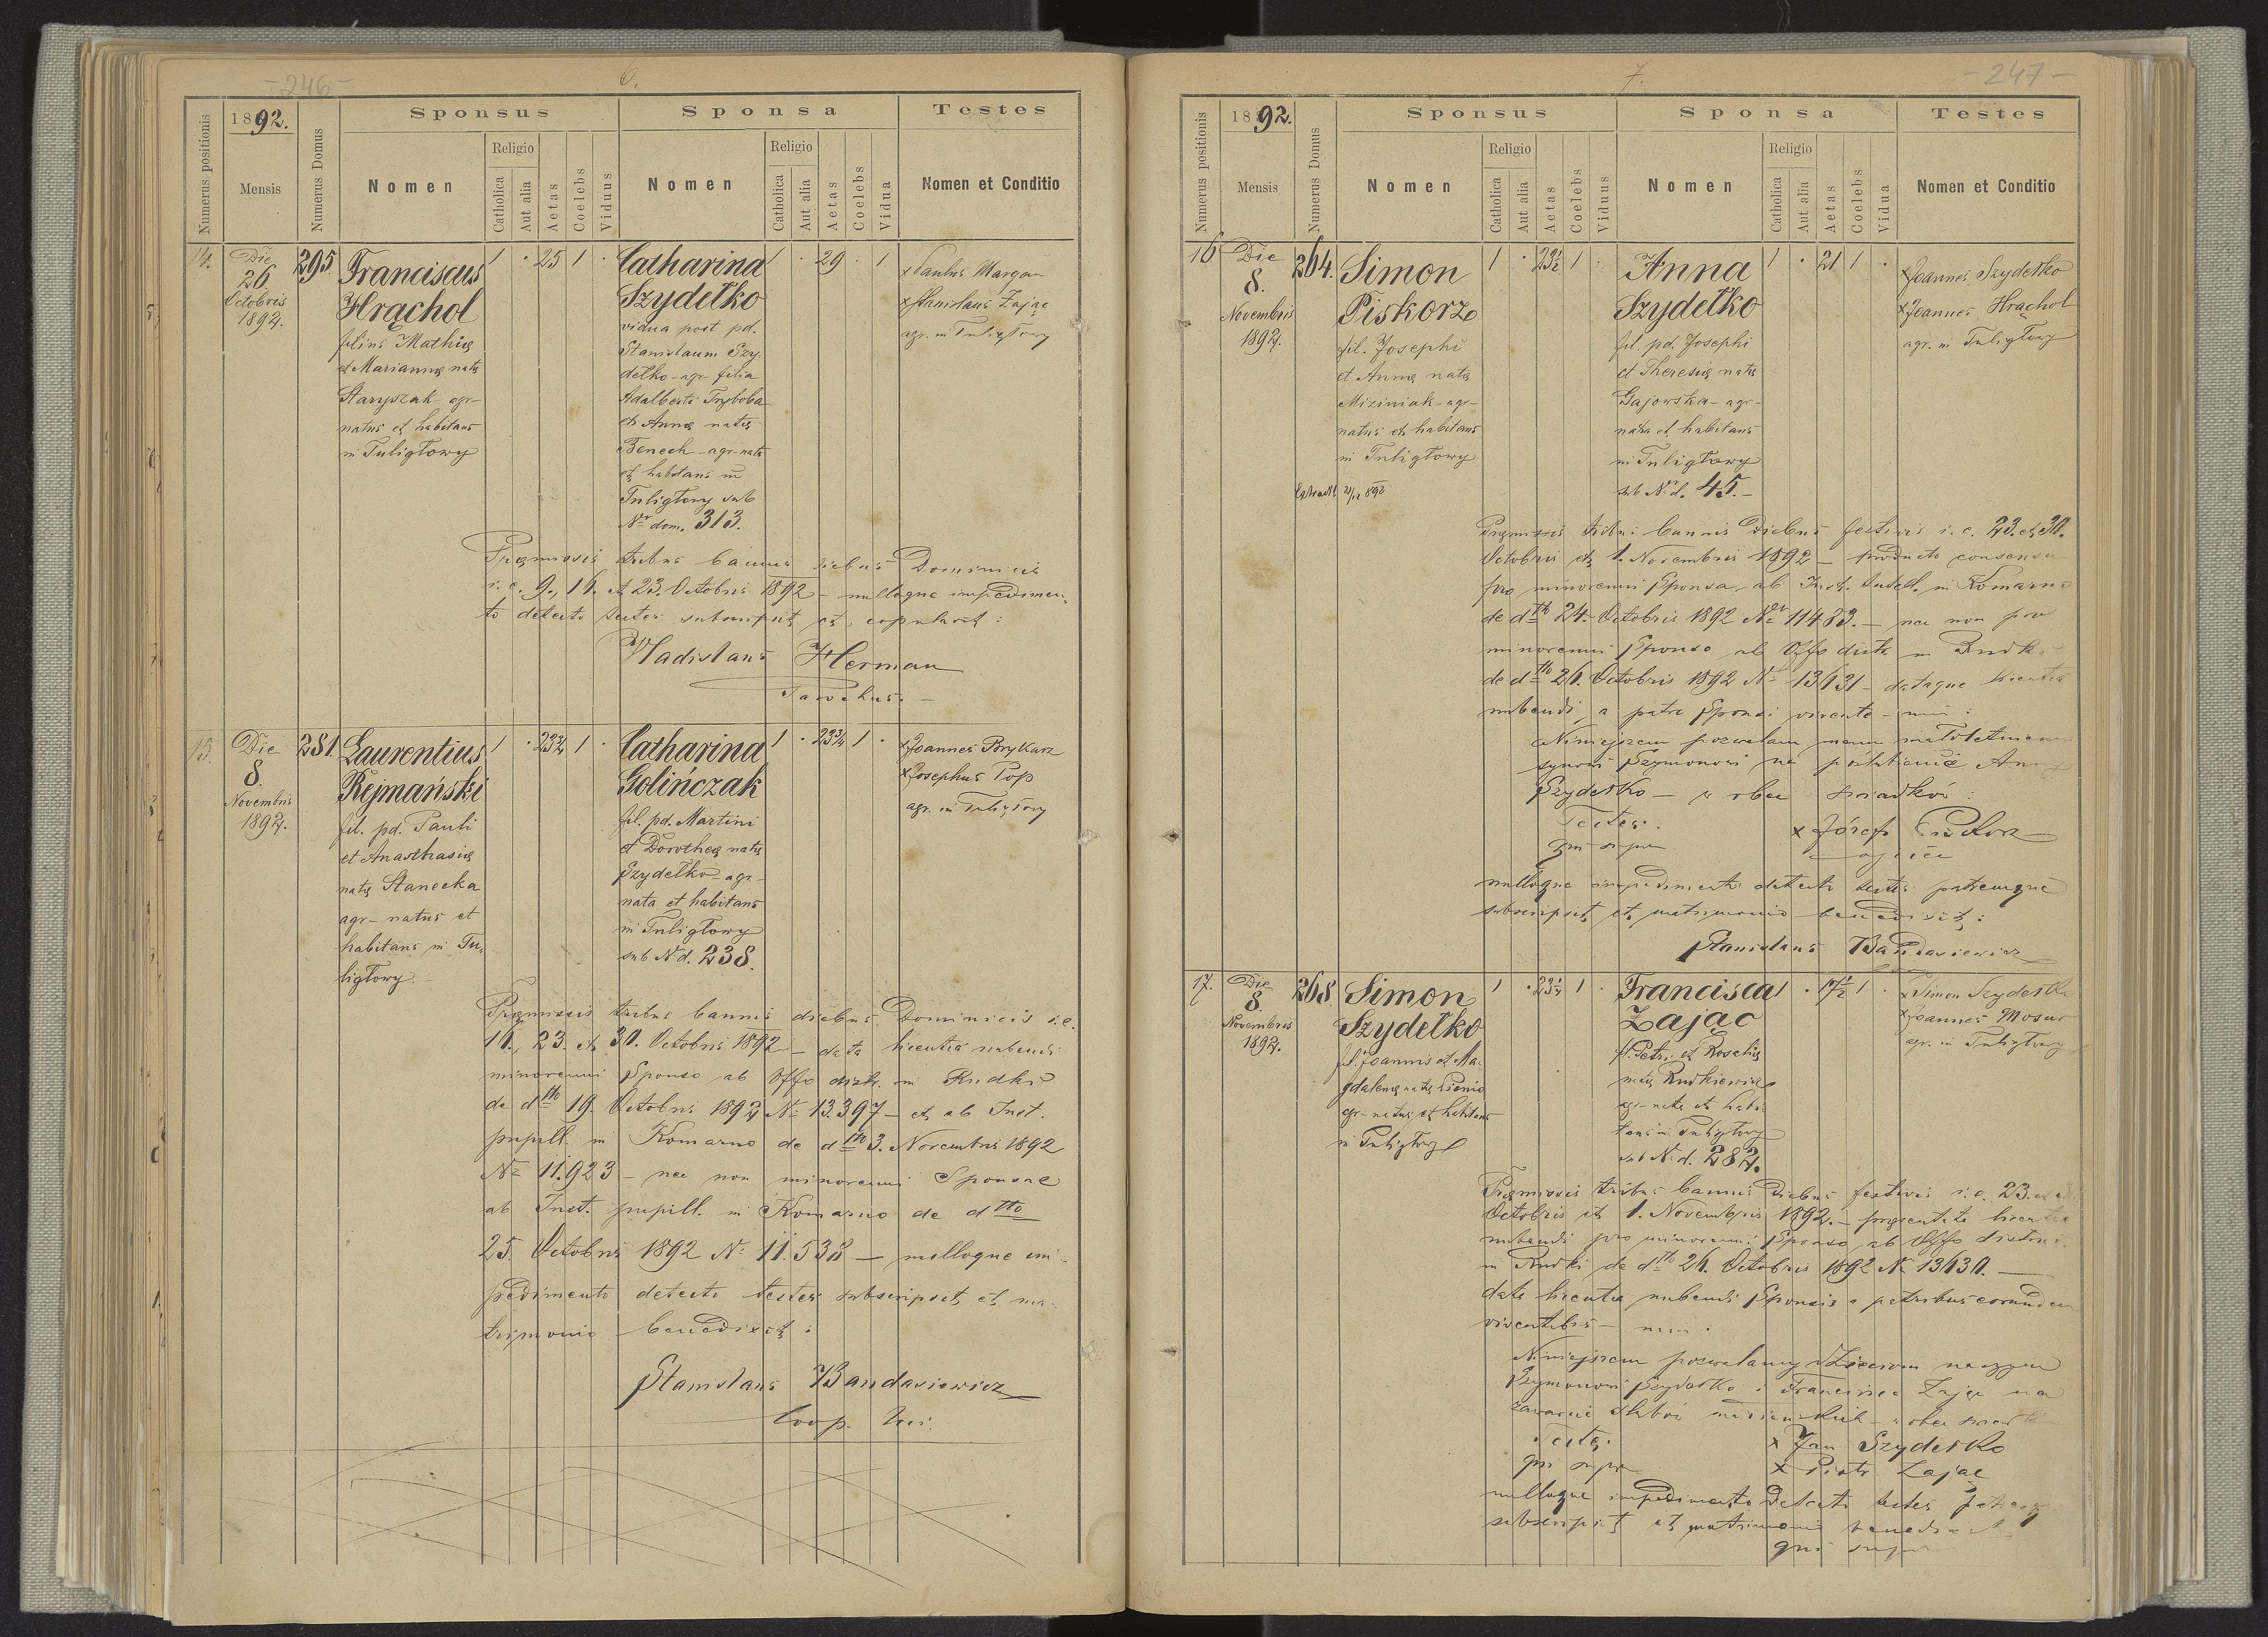 - 246 -
6.
Numerus positionis
1892.
Mensis
Numerus Domus
Sponsus
Nomen
Religio
Catholica
Aut alia
Aetas
Coelebs
Viduus
Sponsa
Nomen
Religio
Catholica
Aut alia
Aetas
Coelebs
Vidua
Testes
Nomen et Conditio
14.
Die
26.
Octobris
1892.
295.
Franciscus
Hrąchol
filius Mathię
et Mariannę natę
Staryszak - agr-
natus et habitans
in Tuligłowy
1 · 25 1 ·
Catharina
Szydełko
vidua post pd.
Stanislaum Szy-
dełko - agr - filia
Adalberti Tryboba
et Annę natę
Benech - agr - nata
et habitans in
Tuligłowy sub
Nr dom. 313.
1 · 29 · 1
x Paulus Margan
x Stanislaus Zając
agr. in Tuligłowy
Pręmissis tribus bannis diebus Dominicis
i. e. 9., 16. et 23. Octobris 1892 - nulloque impedimen-
to detecto testes subscripsit et copulavit:
Vladislaus Herman
Parochus.
15.
Die
8.
Novembris
1892.
281.
Laurentius
Rejmański
fil. pd. Pauli
et Anasthasię
natę Stanecka
agr - natus et
habitans in Tu-
ligłowy.
1 · 23¾ 1 ·
Catharina
Golińczak
fil. pd. Martini
et Dorotheę natę
Szydełko - agr -
nata et habitans
in Tuligłowy
sub N. d. 238.
1 · 23¾ 1 ·
x Joannes Brykarz
x Josephus Pop
agr. in Tuligłowy
Pręmissis tribus bannis diebus Dominicis i. e.
16., 23. et 30. Octobris 1892 - data licentia nubendi
minorenni Sponso ab Offo distr. in Rudki
de dtto 19. Octobris 1892 No 13.397 - et ab Inst.
pupill. in Komarno de dtto 3. Novembris 1892
No 11.923 - nec non minorenni Sponsae
ab Inst. pupill. in Komarno de dtto
25. Octobris 1892 No 11.538 - nulloque im-
pedimento detecto testes subscripsit et ma-
trimonio benedixit:
Stanislaus Bandasiewicz
Coop.
- 247 -
7.
Numerus positionis
1892.
Mensis
Numerus Domus
Sponsus
Nomen
Religio
Catholica
Aut alia
Aetas
Coelebs
Viduus
Sponsa
Nomen
Religio
Catholica
Aut alia
Aetas
Coelebs
Vidua
Testes
Nomen et Conditio
16
Die
8.
Novembris
1892.
264.
Simon
Piskorz
fil. Josephi
et Annę natę
Miziniak - agr -
natus et habitans
in Tuligłowy
1 · 23½ 1 ·
Anna
Szydełko
fil. pd. Josephi
et Theresię natę
Gajowska - agr -
nata et habitans
in Tuligłowy
sub Nr. d. 45. -
1 · 21 1 ·
x Joannes Szydełko
x Joannes Hrąchol
agr. in Tuligłowy
Pręmissis tribus bannis diebus festivis i. e. 23. et 30.
Octobris et 1. Novembris 1892 - producto consensu
pro minorenni Sponsa ab Inst. in Komarno
de dtto 24. Octobris 1892 Nr 11483. - nec non pro
minorenni Sponso ab Offo distr. in Rudki
de dtto 26. Octobris 1892 No 13631 - dataque licentia
nubendi a patre Sponsi vivente - :
Niniejszem pozwalam memu małoletniemu
synowi Szymonowi na poślubienie Anny
Szydełko - w obec świadków:
Testes:
x Józef Piskorz
ojciec
nulloque impedimento detecto testes patremque
subscripsit et matrimonio benedixit:
Stanislaus Bandasiewicz
17.
Die
8.
Novembris
1892.
268
Simon
Szydełko
fil. Joannis et Ma-
gdalenę natę
agr - natus et habitans
in Tuligłowy
1 · 23¼ 1 ·
Francisca
Zając
fil. Petri et Rosalię
natę Rudkiewicz
agr - nata et habi-
tans in Tuligłowy
sub N. d. 282.
1 · 17½ 1 ·
x Simon Szydełko
x Joannes Mosur
agr. in Tuligłowy
Pręmissis tribus bannis diebus festivis i. e. 23. et
Octobris et 1. Novembris 1892. - pręsentata licentia
nubendi pro minorenni Sponso ab Offo district.
in Rudki de dtto 26. Octobris 1892 No 13630. -
data licentia nubendi Sponsis a patribus eorundem
viventibus - :
Niniejszem pozwalamy dzieciom naszym
Szymonowi Szydełko i Francisce Zając na
zawarcie ślubów małżeńskich - w obec
Testes:
qui supra
x Jan Szydełko
x Piotr Zając
nulloque impedimento detecto testes
subscripsit et matrimonio benedixit
qui supra